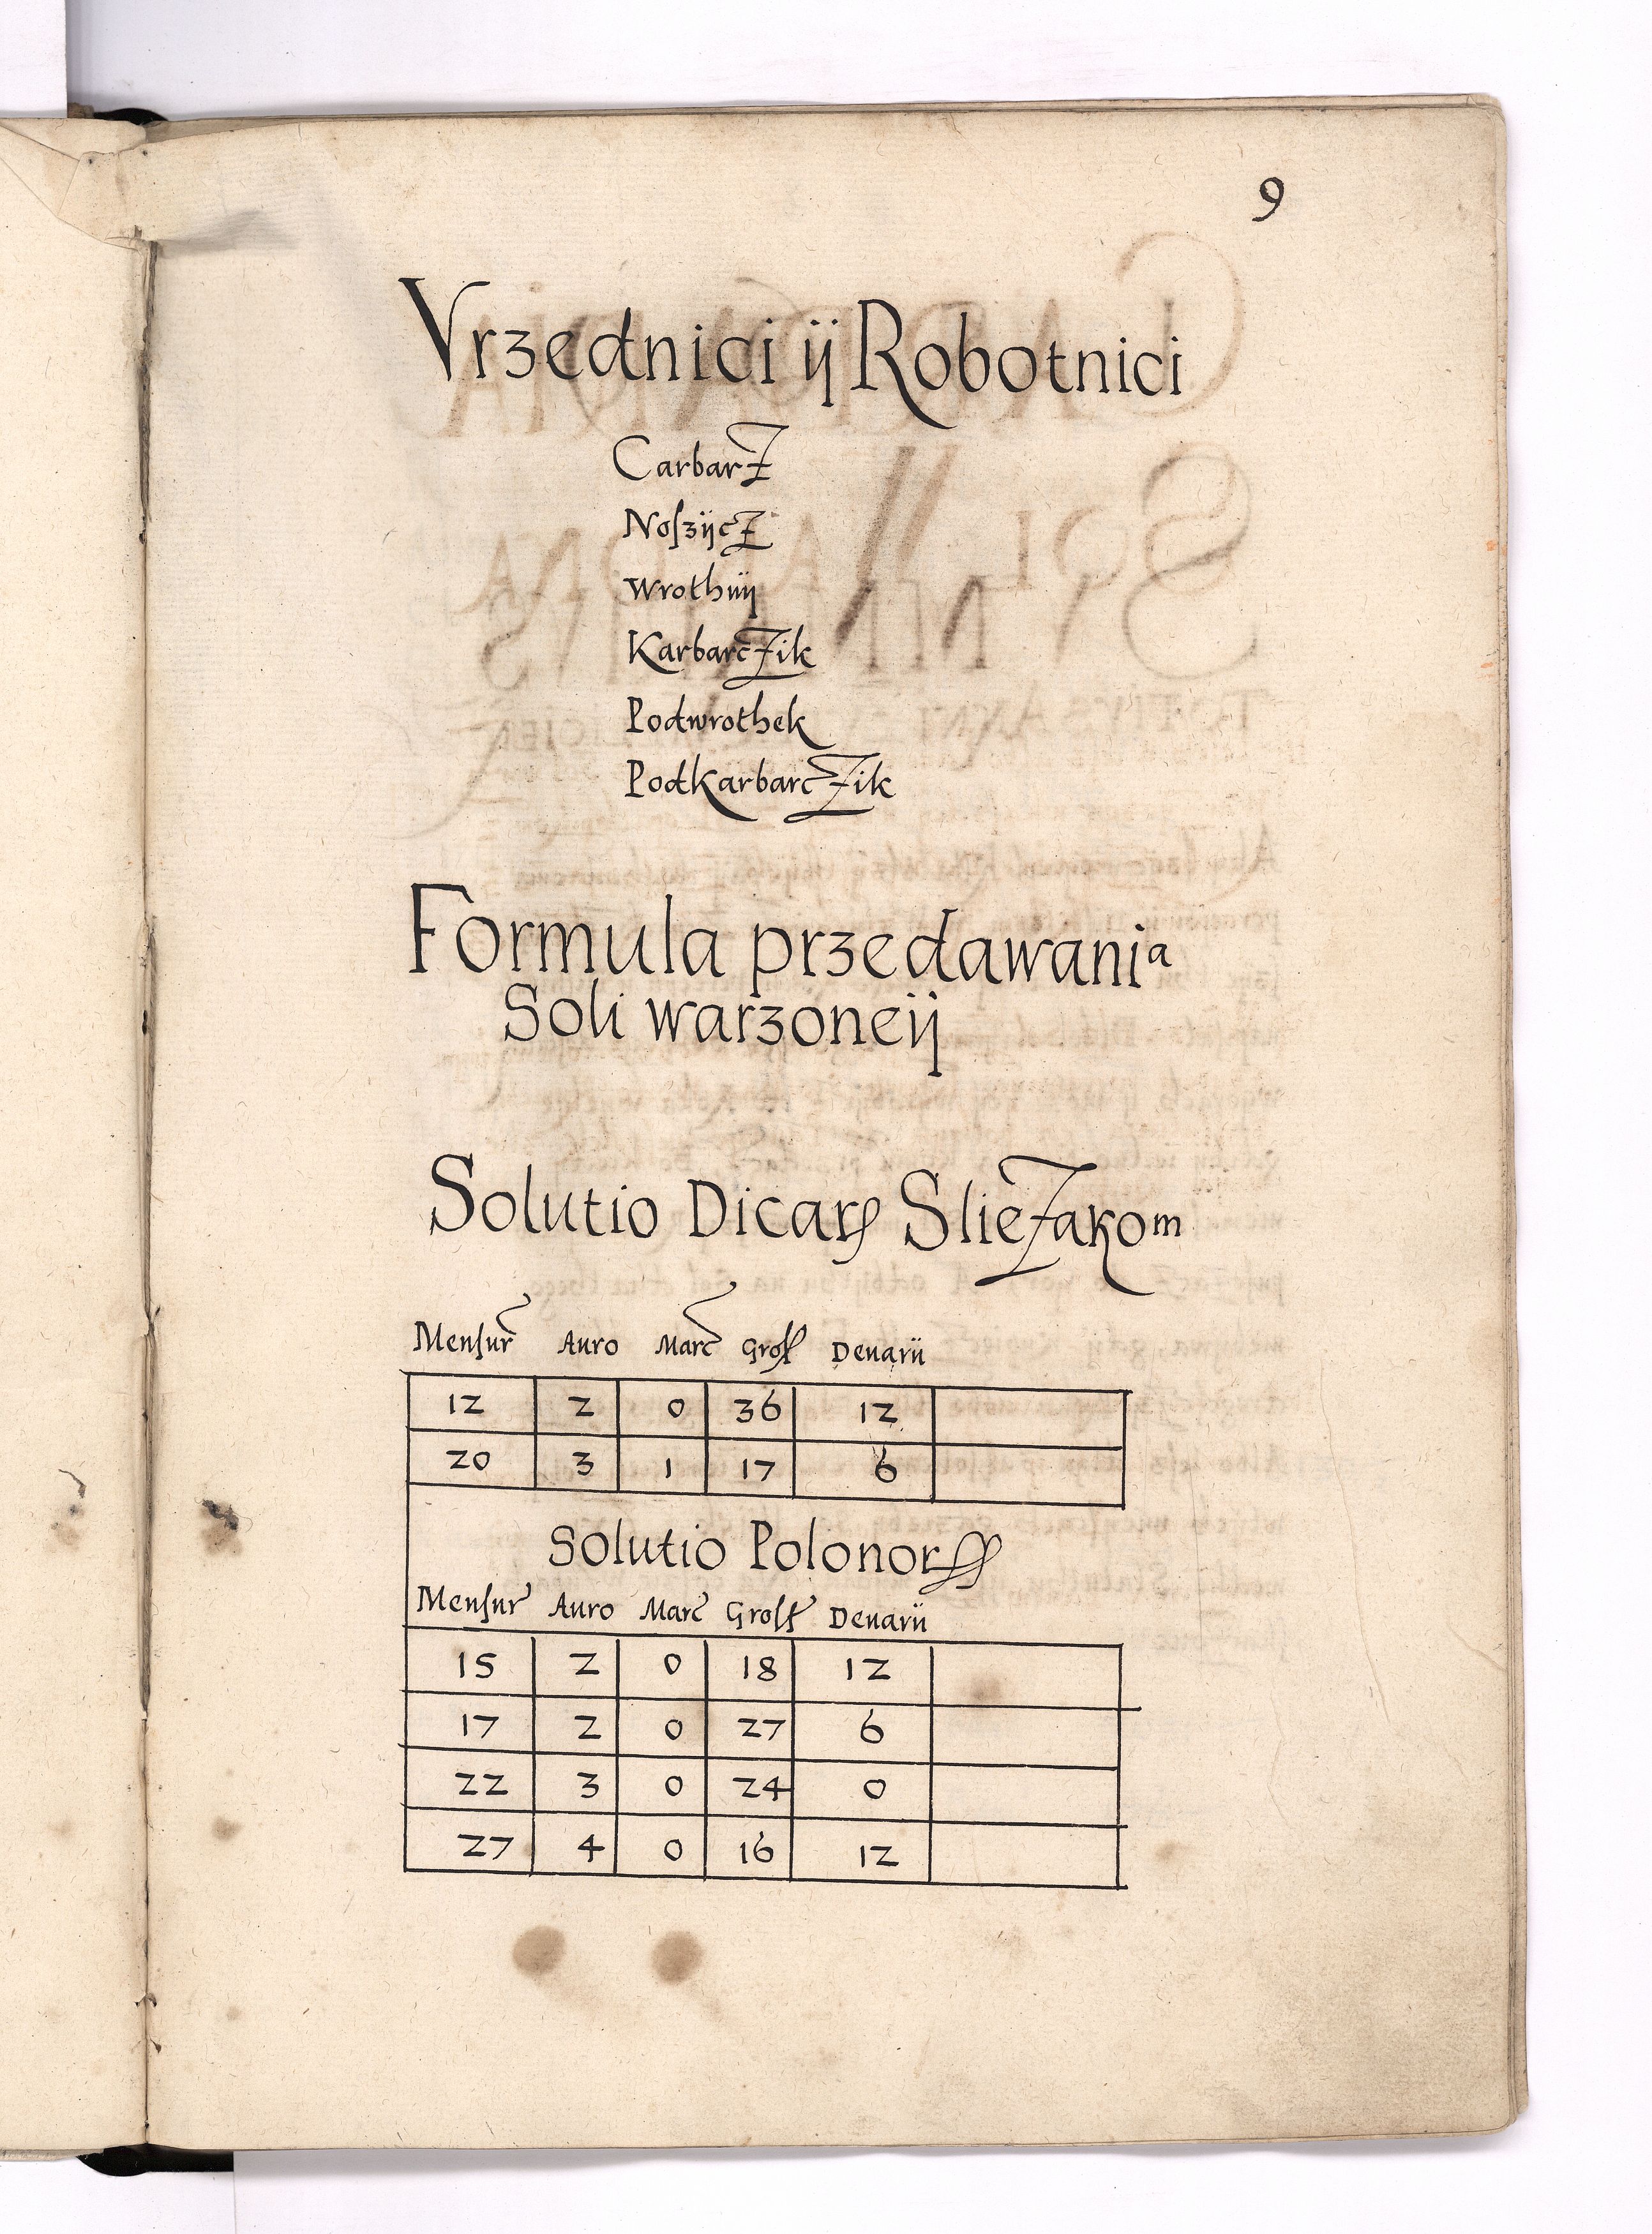 9
Vrzednici ÿ Robotnici
CarbarZ
Noſzÿcz
wrothnÿ
KarbarcZik
Podwrothek
PodkarbarcZik
Formula przedawania
Soli warzoneÿ
Solutio Dicarꝝ SlieZakom
Menſur Auro Marc Groſſ Denarii
12 2 0 36 12
20 3 1 17 6
Solutio Polonorꝝ
Menſur Auro Marc Groſſ Denarii
15 2 0 18 12
17 2 0 27 6
22 3 0 24 0
27 4 0 16 12